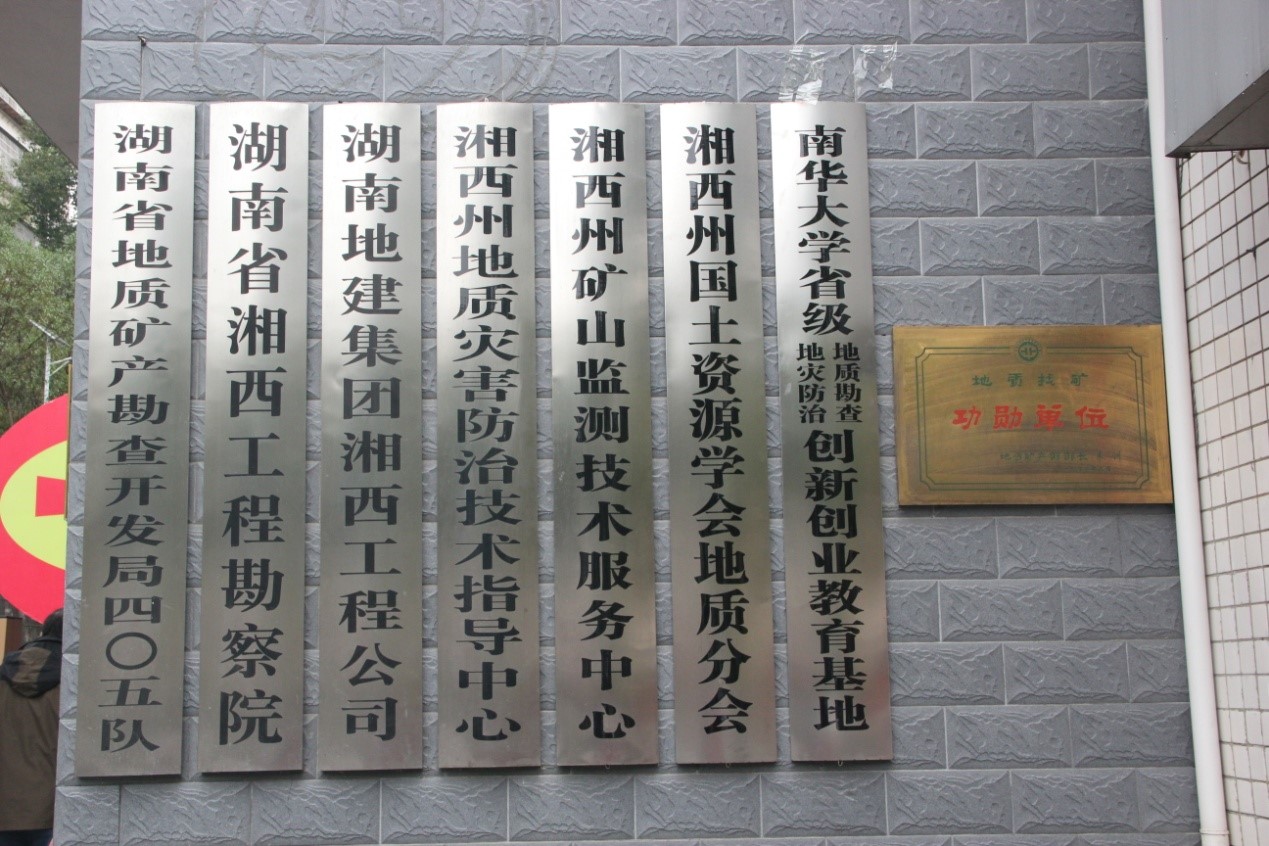 湖南省地质矿产勘查开发局四〇五队
湖南省湘西工程勘察院
湖南地建集团湘西工程公司
湘西州地质灾害防治技术指导中心
湘西州矿山监测技术服务中心
湘西州国土资源学会地质分会
南华大学省级
地质勘查
地灾防治
创新创业教育基地
地质找矿
功勋单位